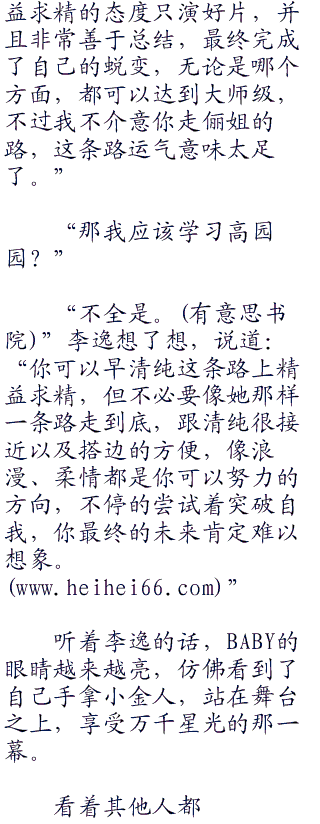 益求精的态度只演好片，并
且非常善于总结，最终完成
了自己的蜕变，无论是哪个
方面，都可以达到大师级，
不过我不介意你走俪姐的
路，这条路运气意味太足
了。”
“那我应该学习高园
园？”
“不全是。(有意思书
院)”李逸想了想，说道：
“你可以早清纯这条路上精
益求精，但不必要像她那样
一条路走到底，跟清纯很接
近以及搭边的方便，像浪
漫、柔情都是你可以努力的
方向，不停的尝试着突破自
我，你最终的未来肯定难以
想象。
(www.heihei66.com)”
听着李逸的话，BABY的
眼睛越来越亮，仿佛看到了
自己手拿小金人，站在舞台
之上，享受万千星光的那一
幕。
看着其他人都